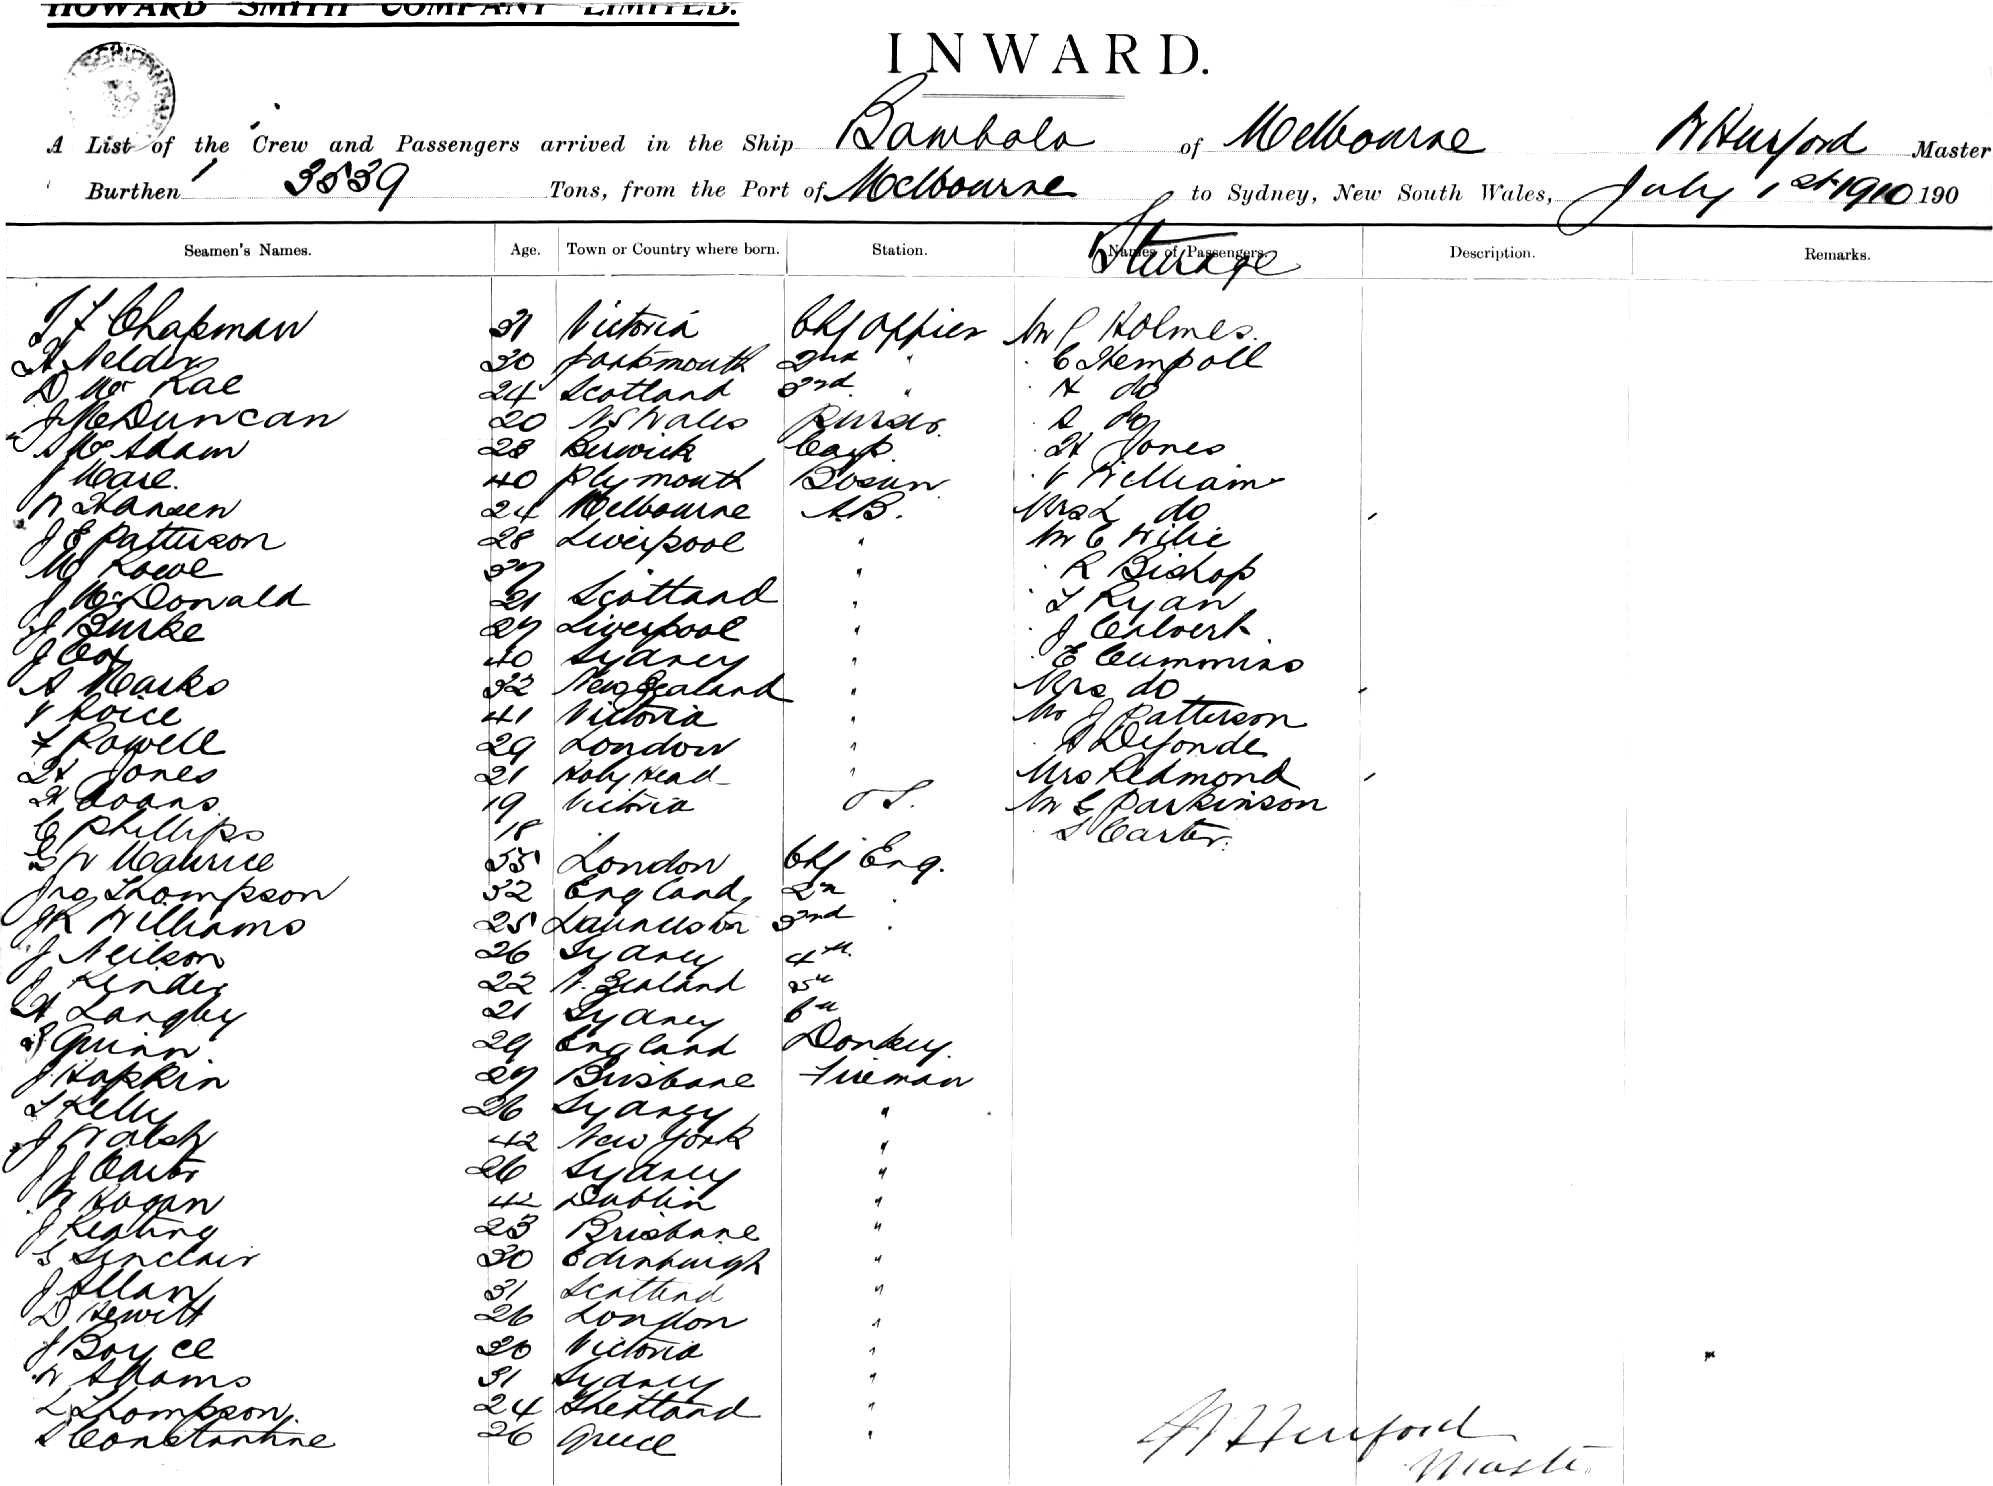 HOWARD SMITH COMPANY LIMITED.
INWARD.
A List of the Crew and Passengers arrived in the Ship Bombala of Melbourne W Hurford Master
Burthen 3539 Tons, from the Port of Melbourne to Sydney, New South Wales, July 1st 1910 190
Seamen's Names. Age. Town or Country where born. Station. Names of Passengers. Description. Remarks.
Steerage
Chapman 31 Victoria Chf Officer Mr Holmes.
H Nelder 30 Portsmouth 2nd " C Hempoll
D Mc Rae 24 Scotland 3rd " H do
J McDuncan 20 N S Wales Purser. A do
A Mc Adam 28 Berwick Carp. H Jones
J Mare. 40 Plymouth Bosun V William
W Hansen 24 Melbourne A.B. Mrs L do
J E Patterson 28 Liverpool " Mr C Wilie
M Rowe 37 " R Bishop
J McDonald 21 Scotland " T Ryan
J Burke 27 Liverpool " J Calvert.
J Cox 40 Sydney " E Cummins
A Marks 32 New Zealand " Mrs do
V Voice 41 Victoria " Mr J Patterson
F Rowell 29 London " A Deyonde
H Jones 21 Holy Head " Mrs Redmond
H 19 Victoria O S. Mr G Parkinson
C Phillips 18 S Carter.
W Maurice 55 London Chf Eng.
Jno Thompson 32 England 2n
J R Williams 25 Launceston 3rd "
J Neilson 26 Sydney 4th.
J Kinder 22 N. Zealand 5th
H Langby 21 Sydney 6th
Quinn. 29 England Donkey.
J Hopkin 27 Brisbane Fireman
T Kelly 26 Sydney "
J Walsh 42 New York "
J J Carter 26 Sydney "
W Hogan 42 Dublin "
J Keating 23 Brisbane "
S Sinclair 30 Edinburgh "
J Allan 31 Scotland "
D Hewitt 26 London "
J Boyce 20 Victoria "
W Adams 31 Sydney "
L Thompson. 24 Shetland "
S Constantine 26 Greece "
W Hurford
Master